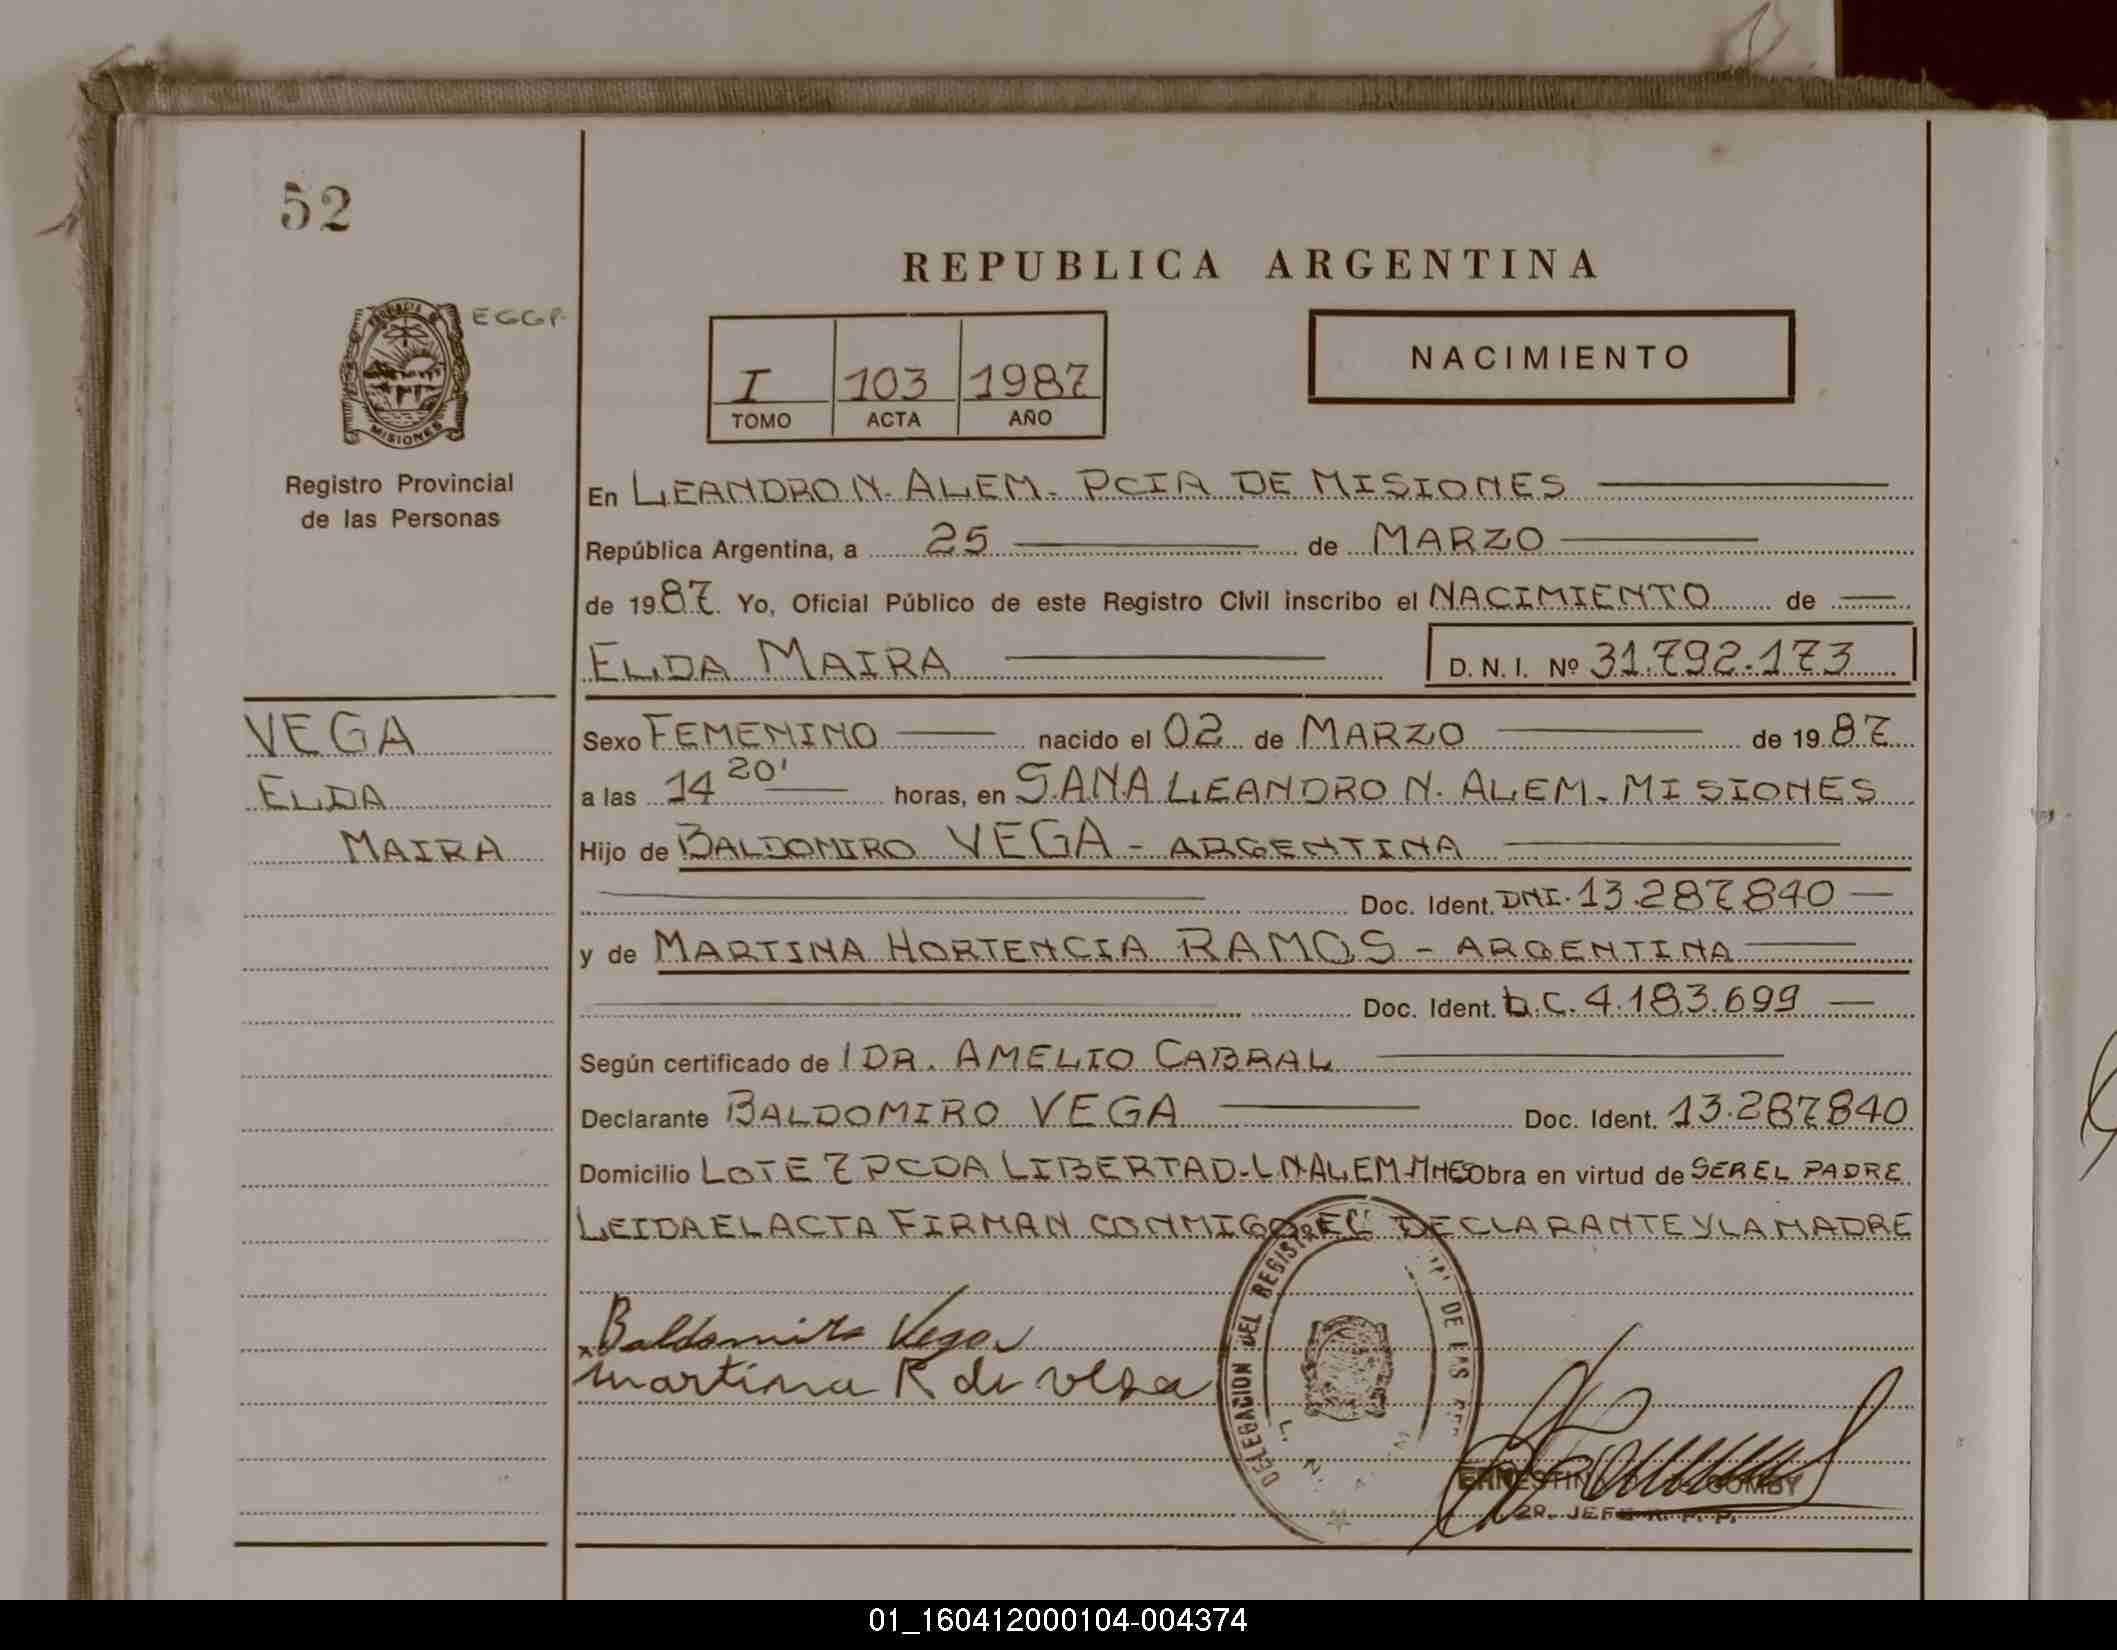 52
REPUBLICA ARGENTINA
EGGP.
PROVINCIA DE
MISIONES
I 103 1987
TOMO ACTA AÑO
NACIMIENTO
Registro Provincial
de las Personas
En LEANDRO N. ALEM. PCIA DE MISIONES
República Argentina, a 25 de MARZO
de 1987. Yo, Oficial Público de este Registro Civil inscribo el NACIMIENTO de
ELIDA MAIRA D. N. I. Nº 31.792.173
VEGA
ELIDA
MAIRA
Sexo FEMENINO nacido el 02 de MARZO de 1987
a las 14 20' horas, en S.A.N.A LEANDRO N. ALEM. MISIONES
Hijo de BALDOMIRO VEGA - ARGENTINA
Doc. Ident. DNI. 13.287.840
y de MARTINA HORTENCIA RAMOS - ARGENTINA
Doc. Ident. L.C. 4.183.699
Según certificado de DR. AMELIO CABRAL
Declarante BALDOMIRO VEGA Doc. Ident. 13.287.840
Domicilio LOTE 7 PCDA LIBERTAD-L.N.ALEM-MNES Obra en virtud de SER EL PADRE
LEIDA EL ACTA FIRMAN CONMIGO EL DECLARANTE Y LA MADRE
Baldomiro Vega
martina R de vega
DELEGACION DEL REGISTRO DE LAS
L. N. ALEM
ERNESTINA GOMBY
2R. JEFE R. P. P.
01_160412000104-004374